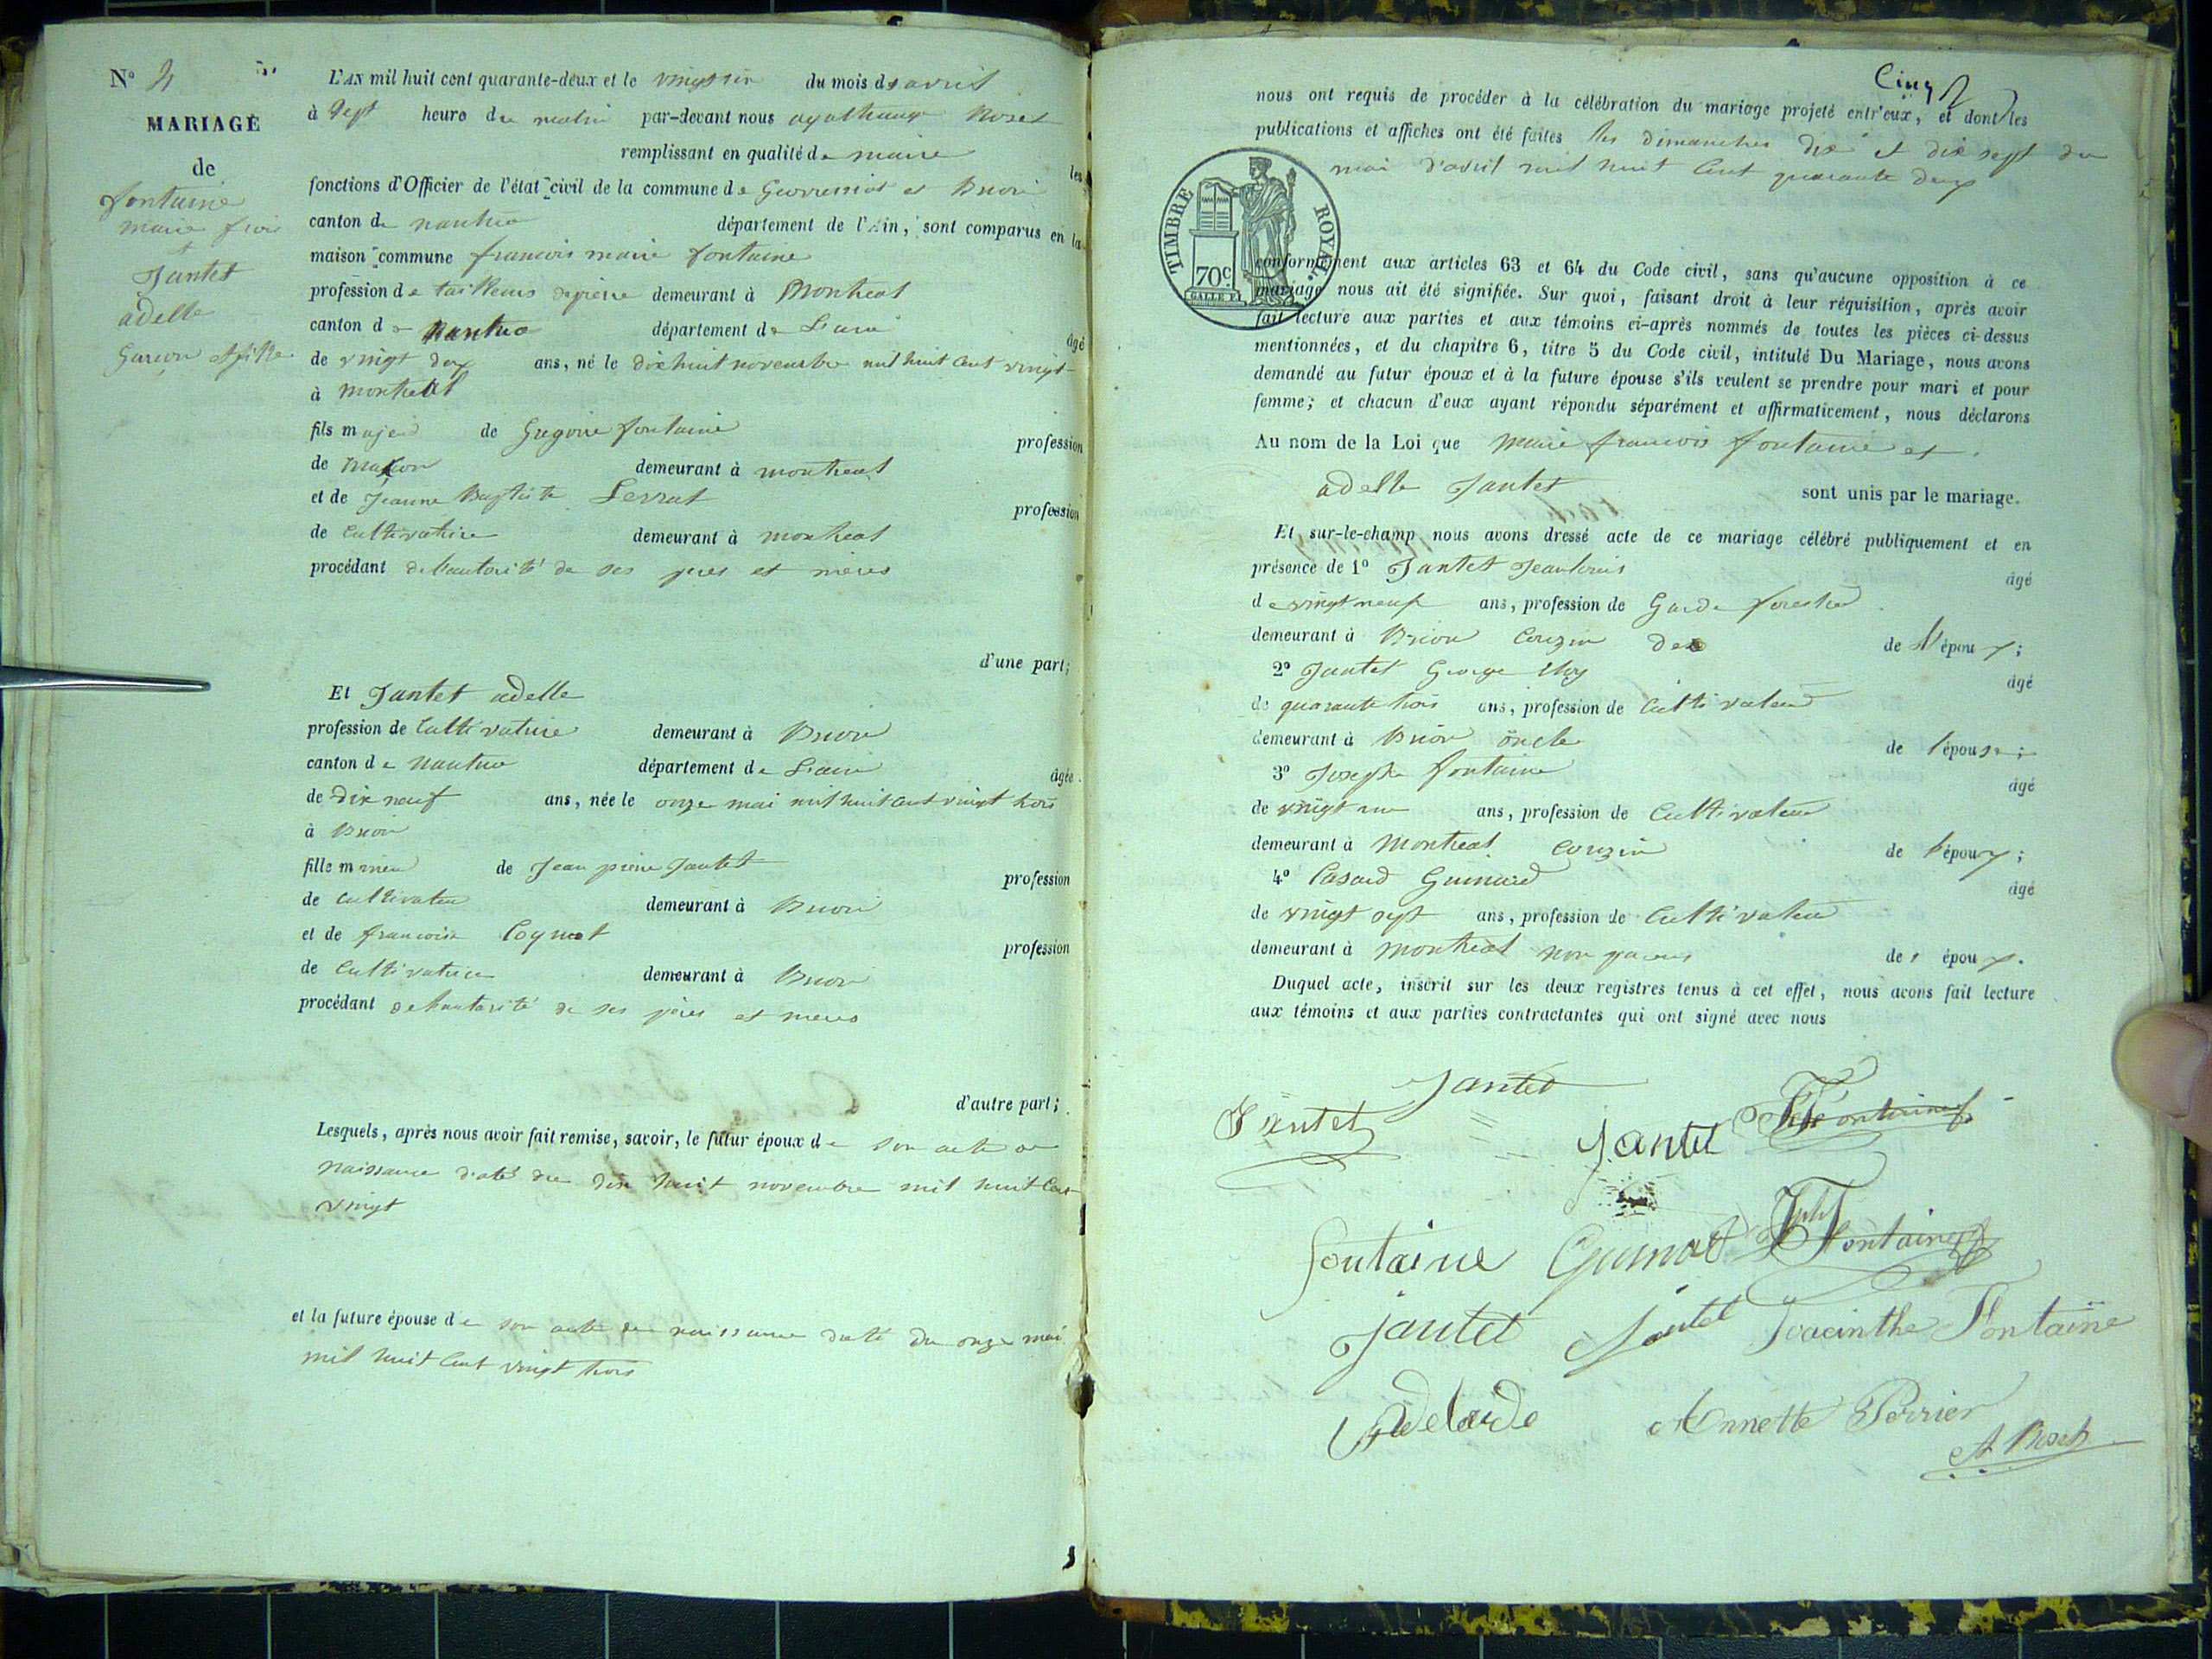 N° 4
MARIAGE
de
fontaine
marie frois
et
Jantet
adelle
Garcon et fille
L'AN mil huit cent quarante-deux et le vingt six du mois de avril
à Sept heure du matin par-devant nous agathange Roset
remplissant en qualité de maire les
fonctions d'Officier de l'état civil de la commune de Geovressiat et Brion
canton de nantua département de l'Ain, sont comparus en la
maison commune francois marie fontaine
profession de tailleurs de pierre demeurant à Montreal
canton de Nantua département de L'ain âgé
de vingt deux ans, né le dix huit novembre mil huit cent vingt
à montreal
fils majeur de Gregoire fontaine profession
de macon demeurant à montreal
et de Jeanne Baptiste Serrat profession
de cultivatrice demeurant à montreal
procédant de l'autorité de ses peres et meres
d'une part;
Et Jantet adelle
profession de Cultivatrice demeurant à Brion
canton de Nantua département de L'ain âgée
de dix neuf ans, née le onze mai mil huit cent vingt trois
à Brion
fille mineur de Jean pierre Jantet profession
de cultivateur demeurant à Brion
et de francoise profession
de Cultivatrice demeurant à Brion
procédant de l'autorité de ses pères et meres
d'autre part;
Lesquels, après nous avoir fait remise, savoir, le futur époux de son acte de
naissance daté du dix huit novembre mil huit cent
vingt
et la future épouse de son acte de naissance daté du onze mai
mil huit cent vingt trois
Cinq
nous ont requis de procéder à la célébration du mariage projeté entr'eux, et dont les
publications et affiches ont été faites les dimanches dix et dix sept du
moi d'avril mil huit cent quarante deux
TIMBRE ROYAL
70c
conformément aux articles 63 et 64 du Code civil, sans qu'aucune opposition à ce
mariage nous ait été signifiée. Sur quoi, faisant droit à leur réquisition, après avoir
fait lecture aux parties et aux témoins ci-après nommés de toutes les pièces ci-dessus
mentionnées, et du chapitre 6, titre 5 du Code civil, intitulé Du Mariage, nous avons
demandé au futur époux et à la future épouse s'ils veulent se prendre pour mari et pour
femme; et chacun d'eux ayant répondu séparément et affirmativement, nous déclarons
Au nom de la Loi que marie francois fontaine et
adelle Jantet sont unis par le mariage.
Et sur-le-champ nous avons dressé acte de ce mariage célébré publiquement et en
présence de 1° Jantet Jean louis âgé
de vingt neuf ans, profession de Garde forestier
demeurant à Brion Couzin de l'époux;
2° Jantet George âgé
de quarante trois ans, profession de Cultivateur
demeurant à Brion oncle de l'épouse;
3° Josephe fontaine âgé
de vingt un ans, profession de Cultivateur
demeurant à Montreal couzin de l'époux;
4° Guinard âgé
de vingt sept ans, profession de Cultivateur
demeurant à montreal non parens des époux.
Duquel acte, inscrit sur les deux registres tenus à cet effet, nous avons fait lecture
aux témoins et aux parties contractantes qui ont signé avec nous
Jantet
Jantet Jantet Fontaine
fontaine Fontaine
Jantet Jantet Joacinthe Fontaine
Adelaide Annette Perrier
A Roset